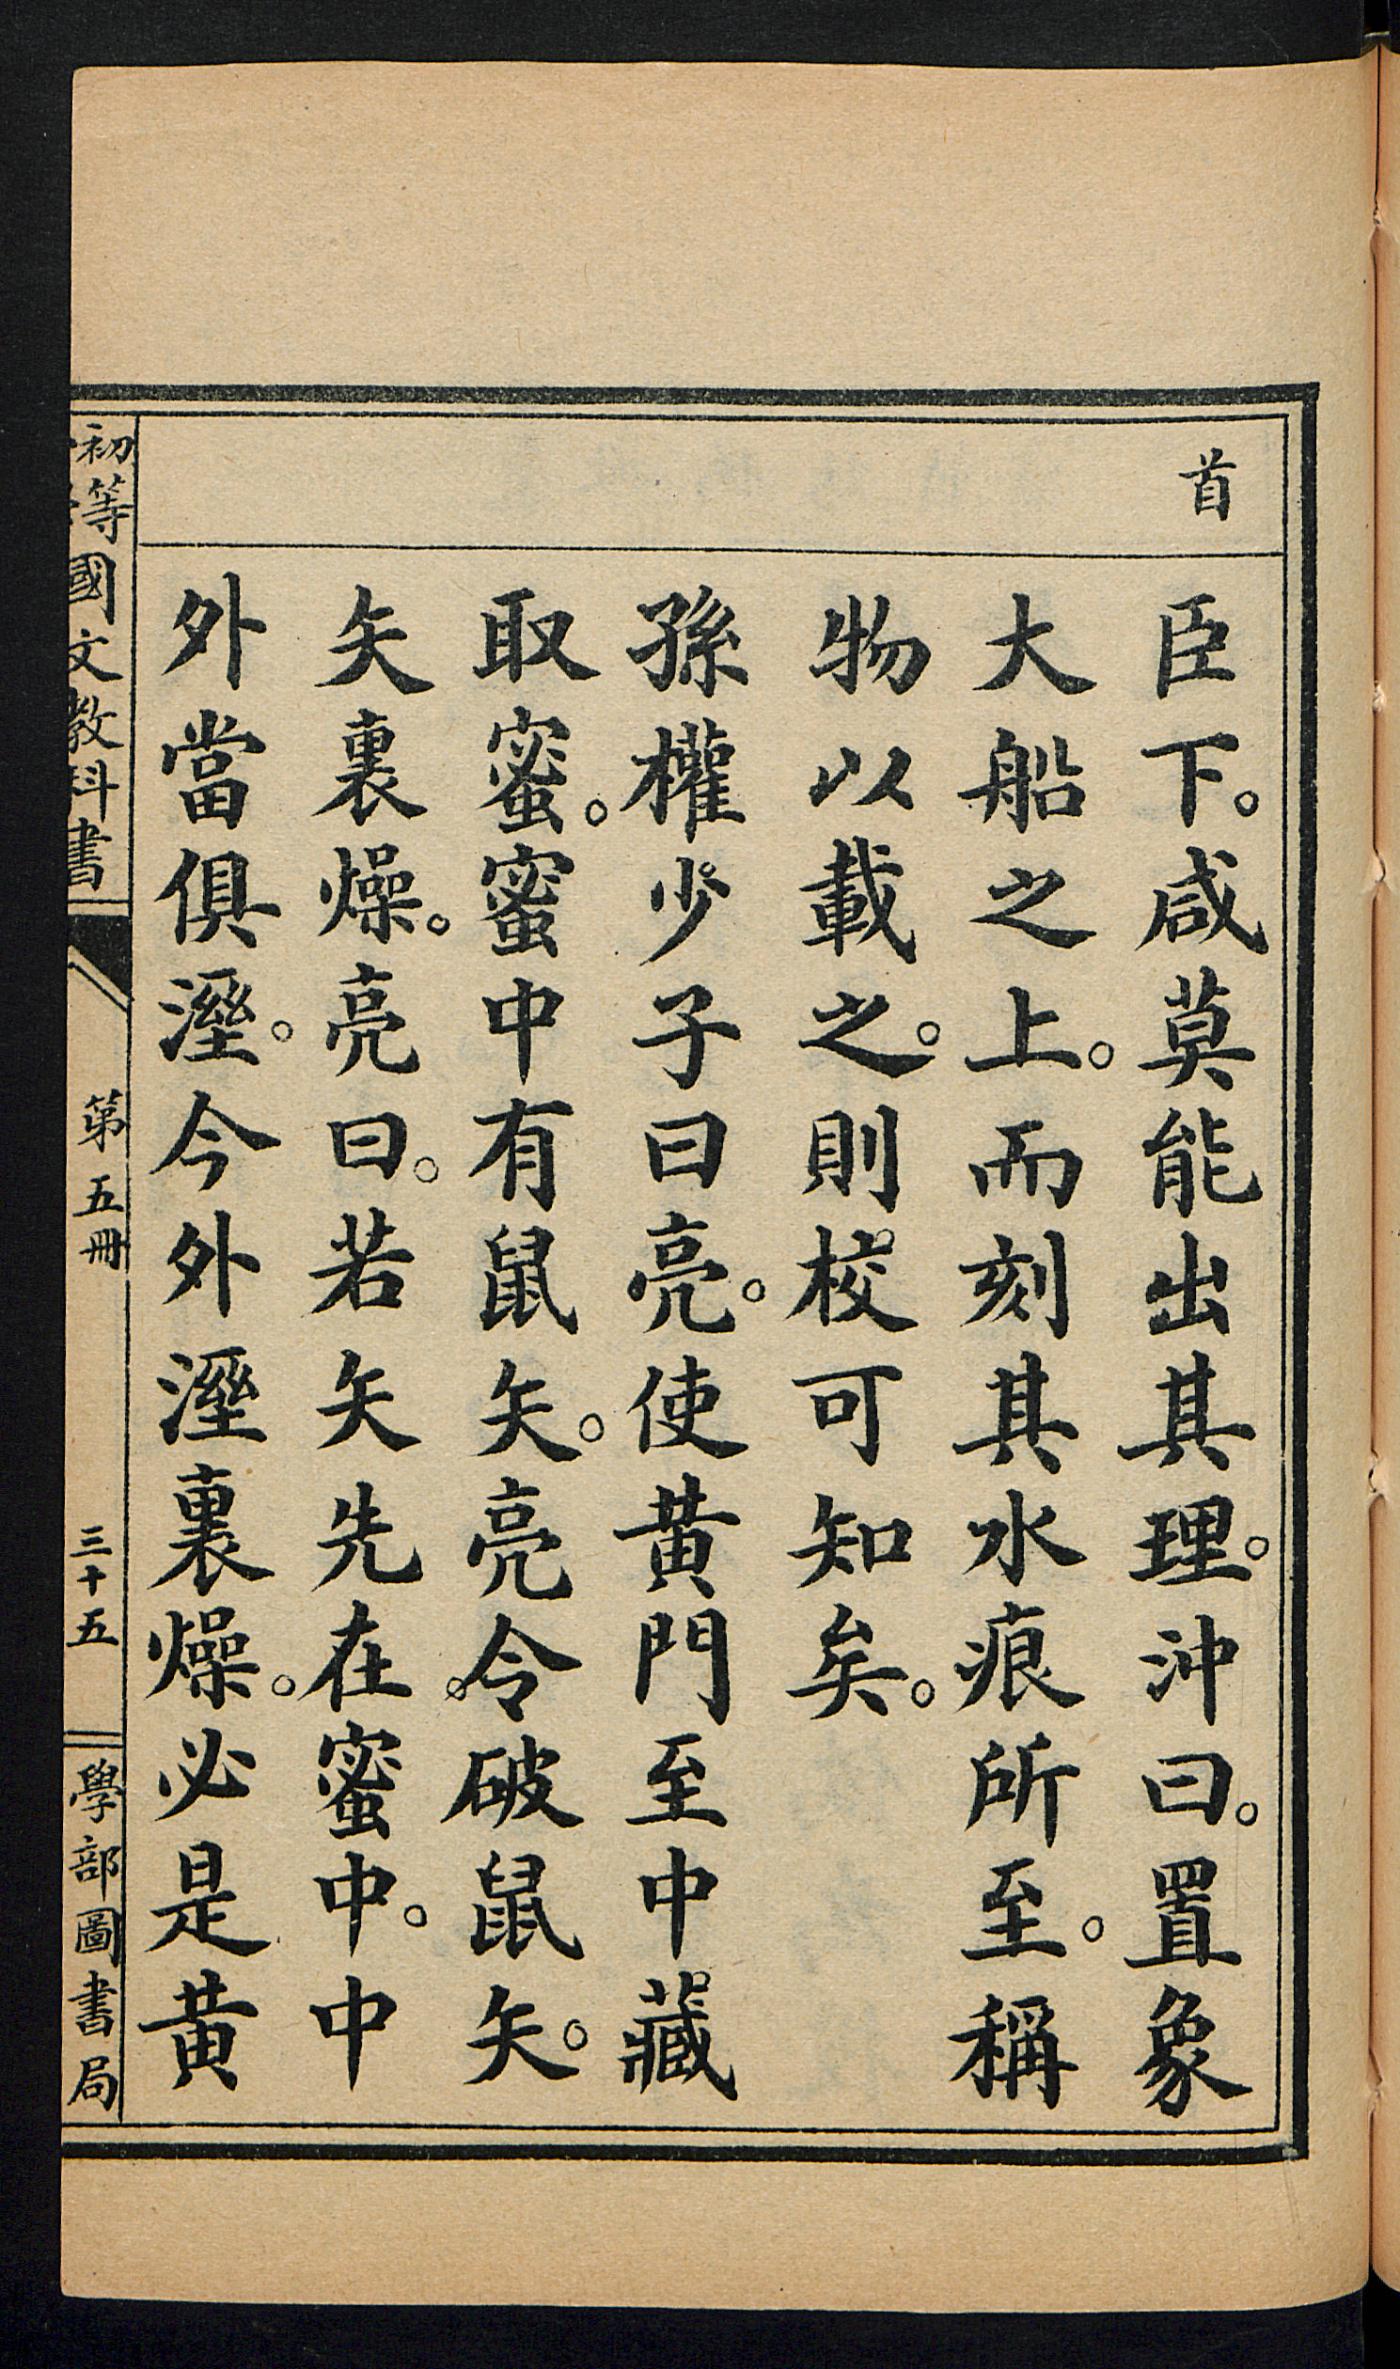 首
臣下。咸莫能出其理。沖曰。置象
大船之上。而刻其水痕所至。稱
物以載之。則校可知矣。
孫權少子曰亮。使黃門至中藏
取蜜。蜜中有鼠矢。亮令破鼠矢。
矢裏燥。亮曰。若矢先在蜜中。中
外當俱溼。今外溼裏燥。必是黃
初等
國文教科書
第五冊
三十五
學部圖書局